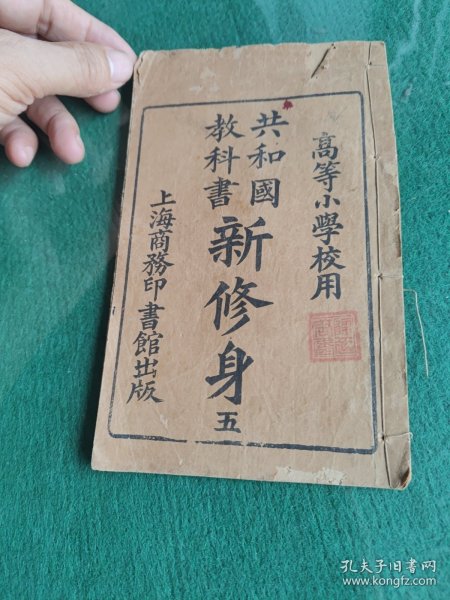 高等小學校用
共和國
教科書
新修身
五
上海商務印書館出版
孔夫子旧书网
www.kongfz.com